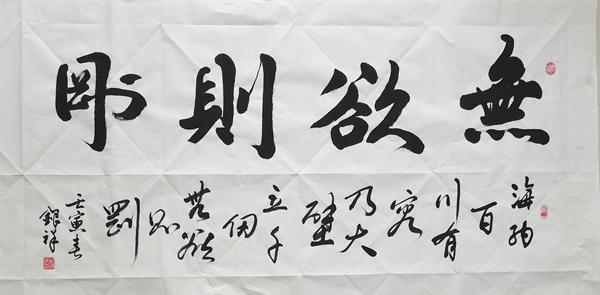 無欲則剛
海納
百
川有
容
乃大
壁
立千
仞
無欲
則
剛
壬寅春
銀祥